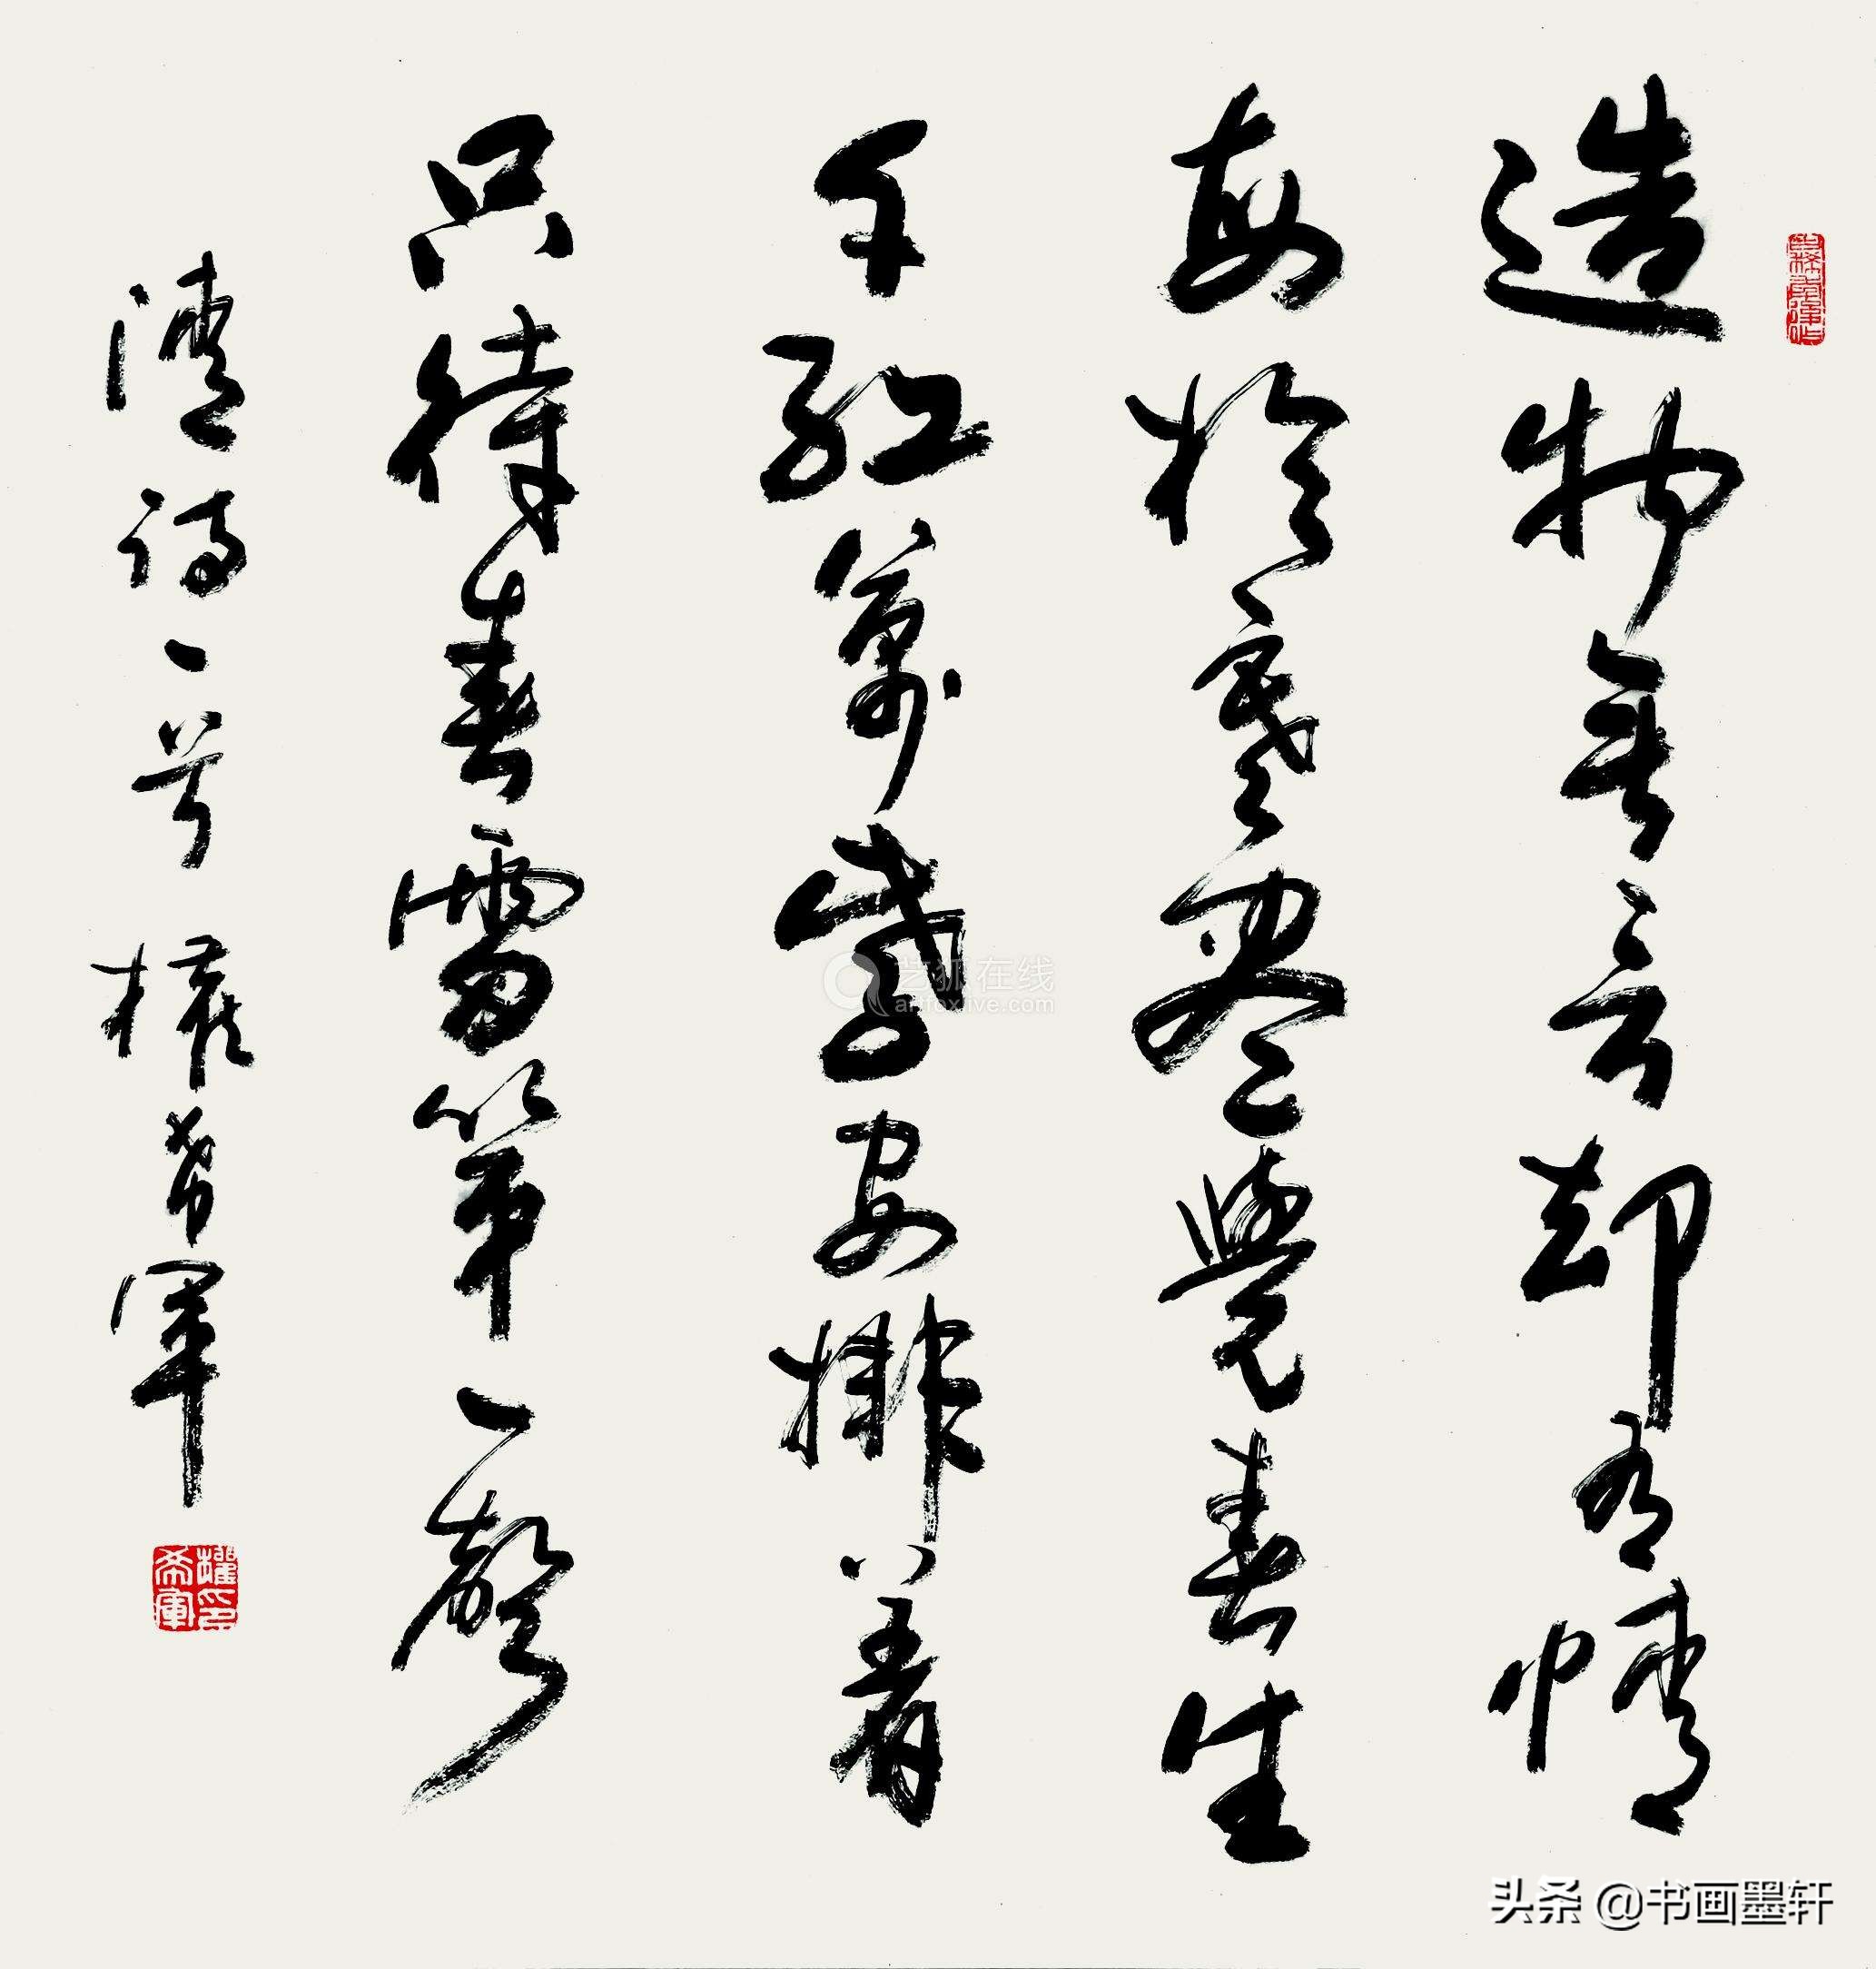 造物無言却有情
每於寒盡覺春生
千紅萬紫安排着
只待春雷第一聲
清詩一首 權希軍
權希軍印
艺狐在线
artfoxlive.com
头条 @书画墨轩